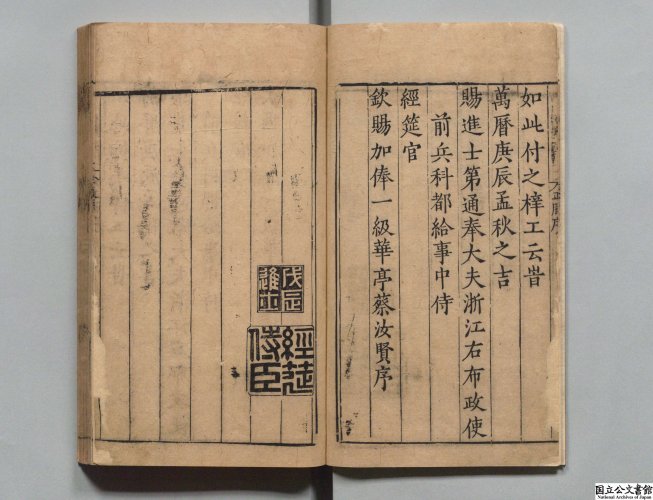 如此付之梓工云旹
萬曆庚辰孟秋之吉
賜進士第通奉大夫浙江右布政使
前兵科都給事中侍
經筵官
欽賜加俸一級華亭蔡汝賢序
戊辰
進士
經筵
侍臣
国立公文書館
National Archives of Japan